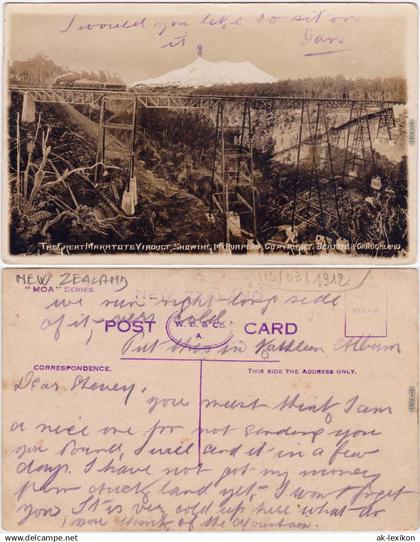 I would you like to sit on
it Dan
THE GREAT MAKATOTE VIADUCT, SHOWING, Mt RUAPEHU, COPYRIGHT.
NEW ZEALAND
15/03/1912
"MOA" SERIES.
we run right long side
of it, very cold
POST W. B. & Co. A. CARD
STAMP
Put this in Kathleen Album
CORRESPONDENCE.
THIS SIDE THE ADDRESS ONLY.
Dear Stevey,
you must think I am
a nice one for not sending you
you Pound, I will send it in a few
days. I have not got my money
from auckland yet, I won't forget
you, It is very cold up here what do
you think of the Mountain.
PHILATELIE · ANSICHTSKARTEN · NUMISMATIK
www.ak-lexikon.de
ak-lexikon